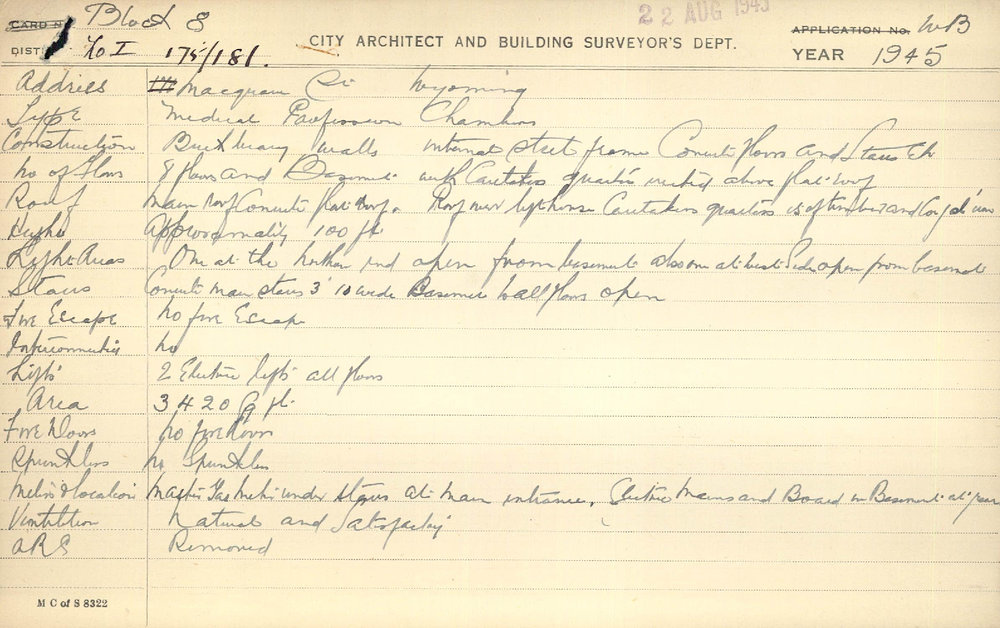 CARD No. Block 8
22 AUG 1945
DIST No I 175/181.
CITY ARCHITECT AND BUILDING SURVEYOR'S DEPT.
APPLICATION No. WB
YEAR 1945
Address Macquarie St Wyoming
Type Medical Profession Chambers
Construction Brick walls internal steel frame Concrete floors and Stairs
No of Floors 8 floors and Basement with Caretakers quarters above flat roof
Roof Main Roof Concrete flat roof. Roof over Caretakers quarters is of timber and iron
Height Approximately 100 ft
Light Areas One at the Northern end open from basement also one at West Side open from basement
Stairs Concrete main stairs 3' 10 wide Basement to all floors open
Fire Escape No fire Escape
Intercommunication No
Lifts 2 Electric lifts all floors
Area 3420 ft
Fire Doors No fire doors
Sprinklers No Sprinklers
Meters & location Master Gas Meter under stairs at main entrance. Electric Mains and Board in Basement at rear
Ventilation Natural and Satisfactory
ARE Removed
M C of S 8322